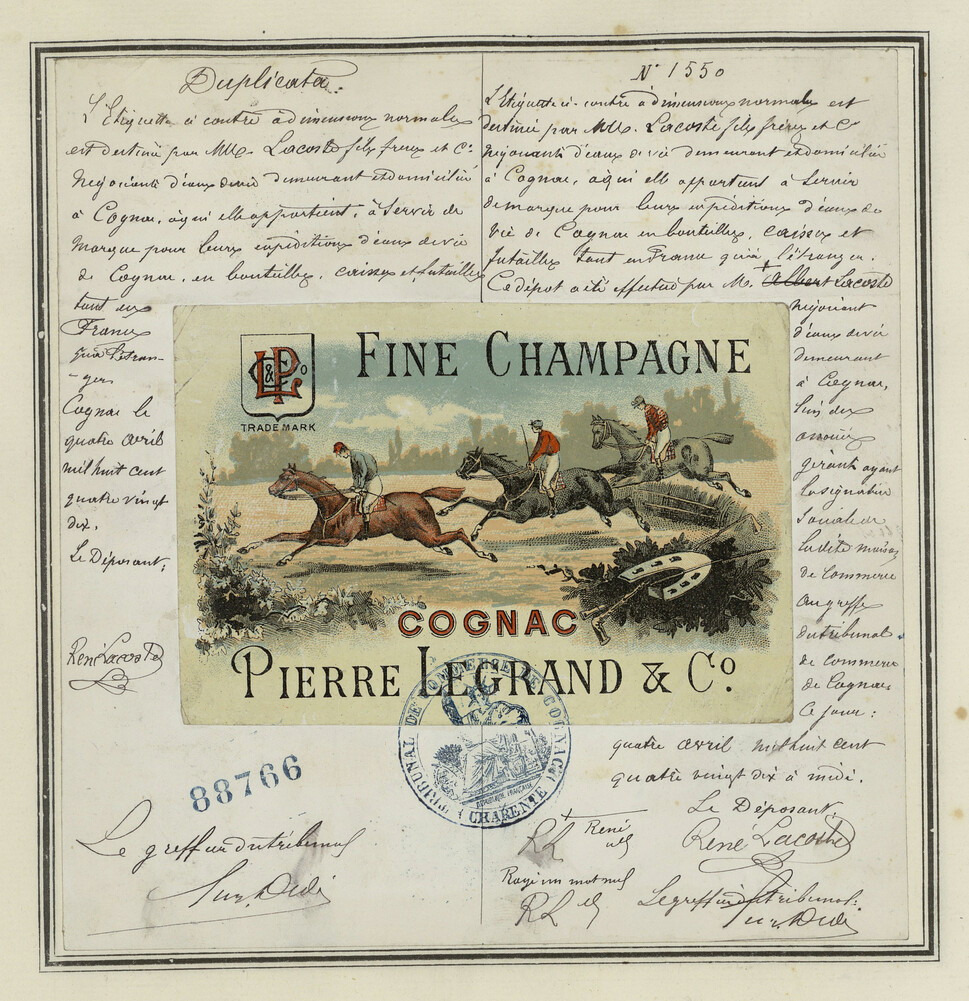 Duplicata.
L'Etiquette ci contre à dimensions normales
est destinée par MM. Lacoste fils frères et Cie
Négociants d'eaux de vie demeurant et domiciliés
à Cognac, à qui elle appartient, à servir de
marque pour leurs expéditions d'eaux de vie
de Cognac, en bouteilles, caisses et futailles
tant en
France
qu'à l'étran-
-ger
Cognac le
quatre avril
mil huit cent
quatre vingt
dix.
Le Déposant,
René Lacoste
88766
Le greffier du tribunal
N° 1550
L'Etiquette ci-contre à dimensions normales est
destinée par MM. Lacoste fils frères et Ce
négociants d'eaux de vie demeurant et domiciliés
à Cognac, à qui elle appartient à servir
de marque pour leurs expéditions d'eaux de
vie de Cognac en bouteilles, caisses et
futailles tant en France qu'à l'étranger.
Ce dépôt a été effectué par M. Albert Lacoste
négociant
d'eaux de vie
demeurant
à Cognac,
l'un des
associés
gérants ayant
la signature
sociale de
la dite maison
de Commerce
au greffe
du tribunal
de Commerce
de Cognac
Ce jour:
quatre avril mil huit cent
quatre vingt dix à midi.
Le Déposant,
René Lacoste
+ René
RL
Rayé un mot nul
RL
Le greffier du tribunal:
LP&Co
TRADE MARK
FINE CHAMPAGNE
COGNAC
PIERRE LEGRAND & Co.
TRIBUNAL DE COMMERCE DE COGNAC
RÉPUBLIQUE FRANÇAISE
CHARENTE